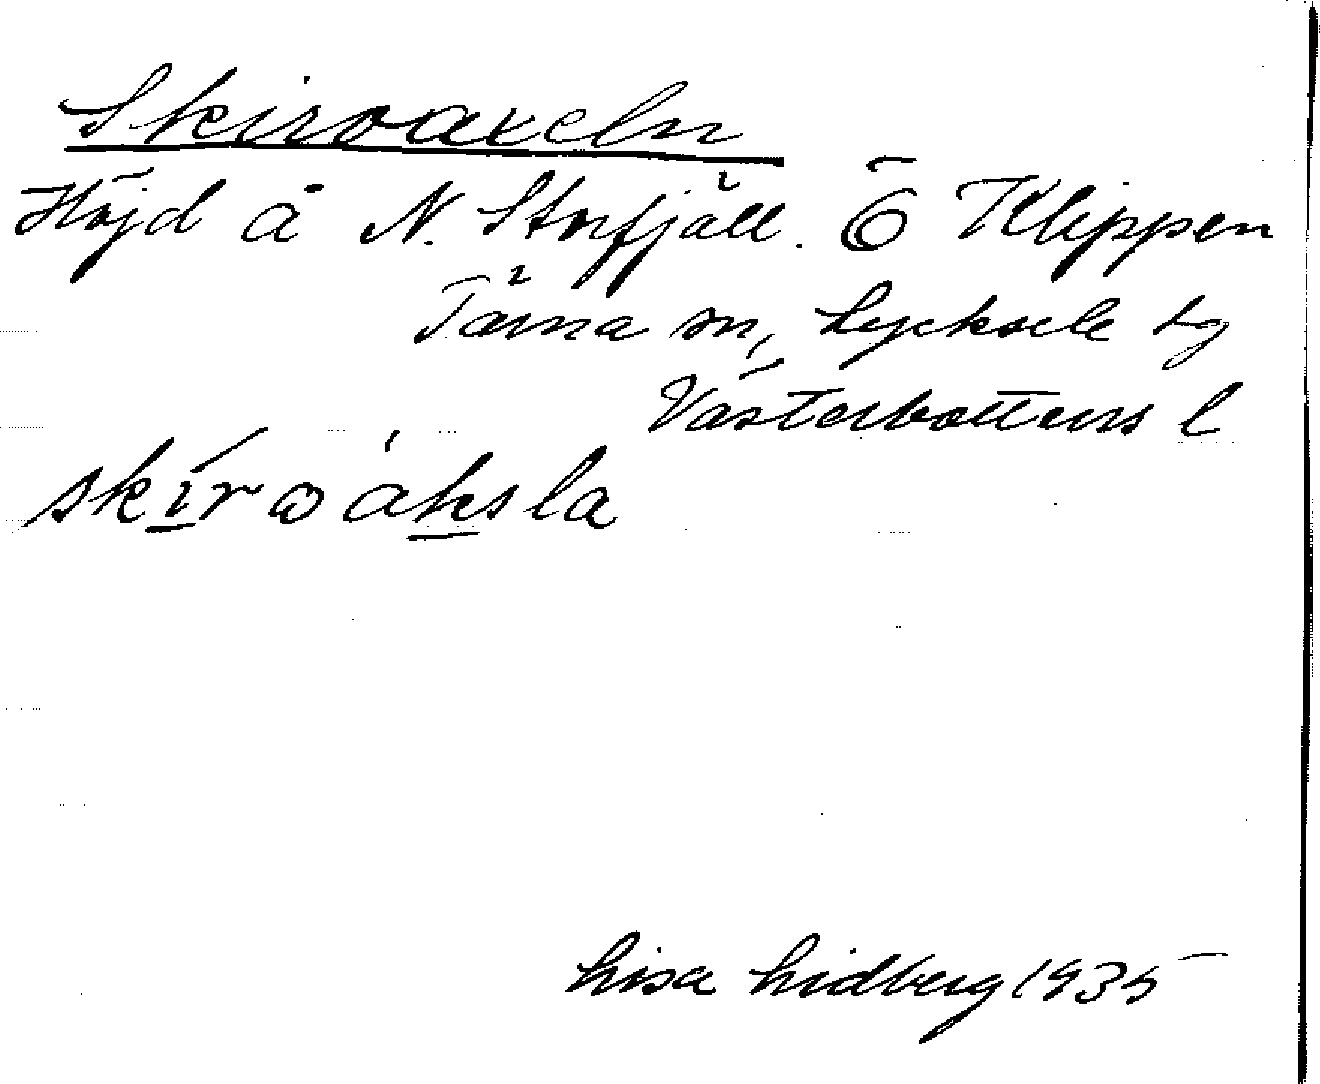 Skirvaxeln
Höjd å N. Storfjäll. Ö Klippen
Tärna sn, Lycksele tg
Västerbottens l
skírwáksla
Lisa Lidberg 1935